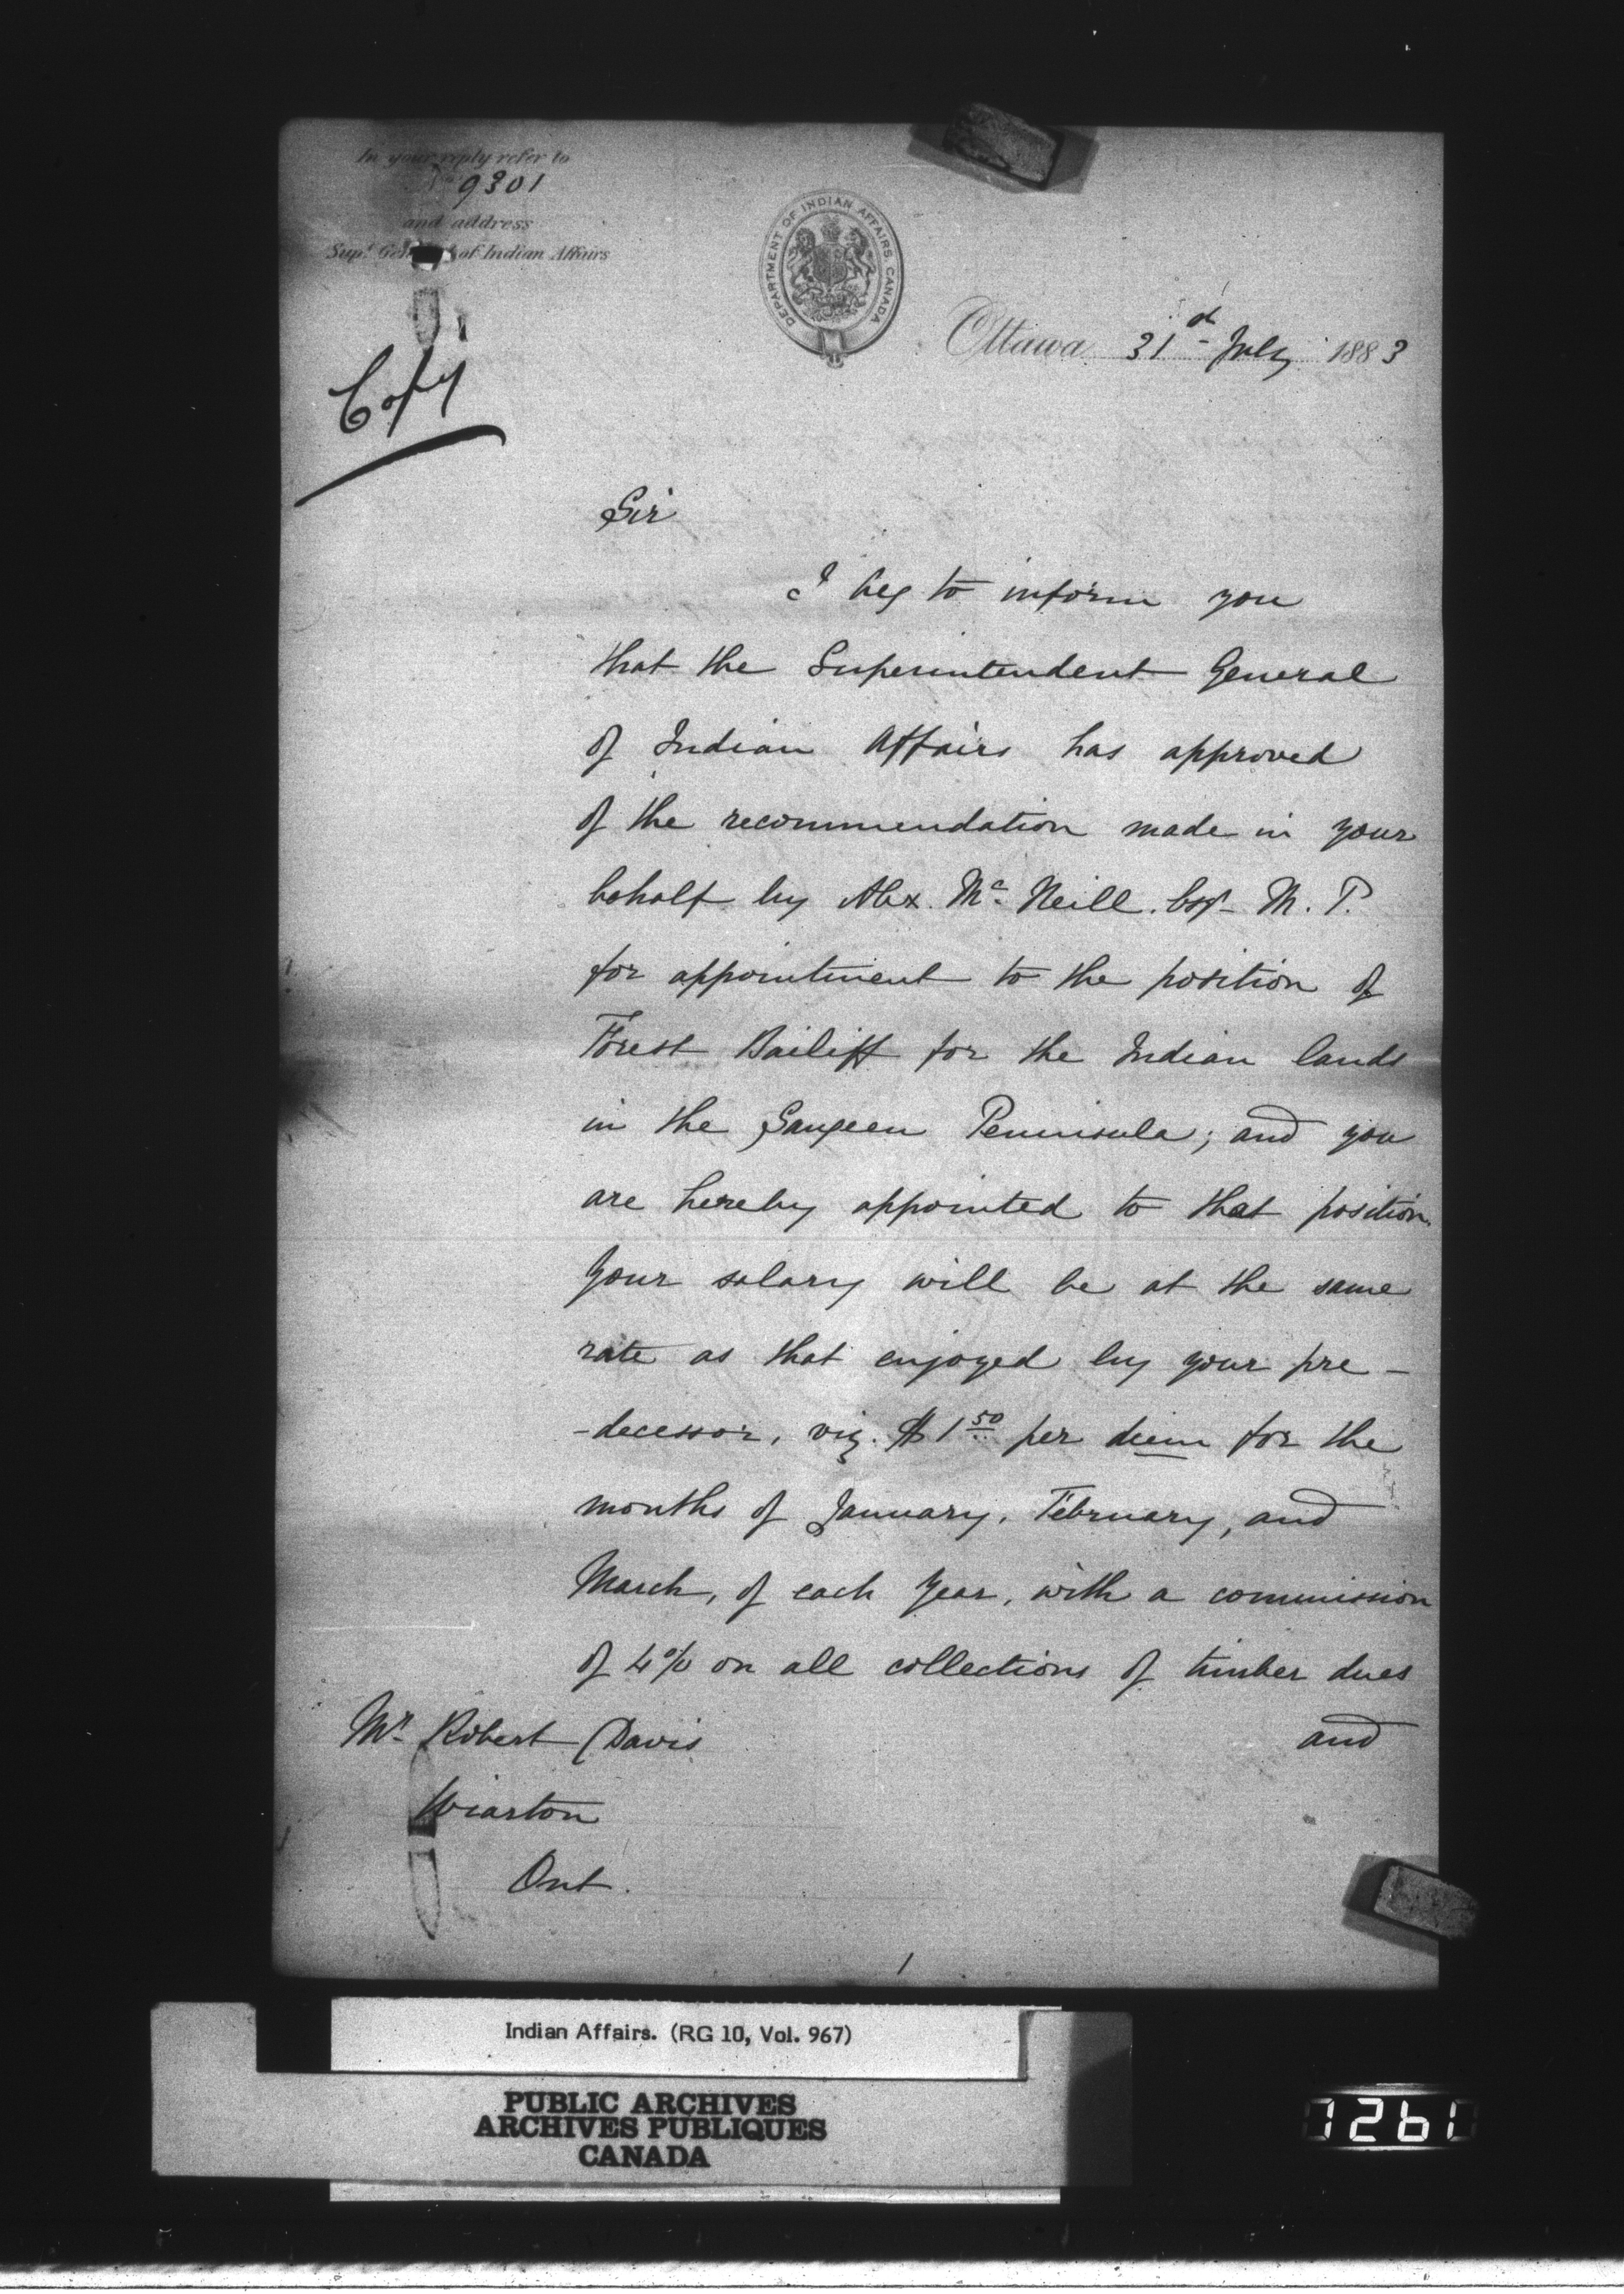 In your reply refer to
No 9301
and address
Supt. Genl of Indian Affairs
DEPARTMENT OF INDIAN AFFAIRS CANADA
Ottawa 31st July 1883
Copy
Sir
I beg to inform you
that the Superintendent General
of Indian Affairs has approved
of the recommendation made in your
behalf by Alex. Mc Neill. Esqr M. P.
for appointment to the position of
Forest Bailiff for the Indian lands
in the Saugeen Peninsula; and you
are hereby appointed to that position.
Your salary will be at the same
rate as that enjoyed by your pre-
-decessor, viz. $1 50 per diem for the
months of January, February, and
March, of each year, with a commission
of 4% on all collections of timber dues
and
Mr Robert Davis
Wiarton
Ont.
1
Indian Affairs. (RG 10, Vol. 967)
PUBLIC ARCHIVES
ARCHIVES PUBLIQUES
CANADA
1261